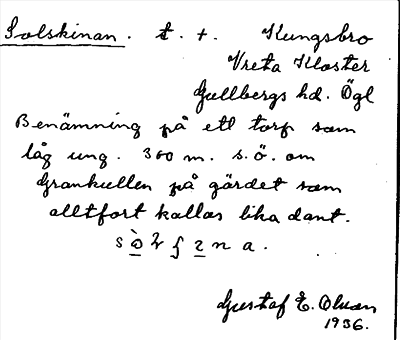 Solskinan. t. +. Kungsbro
Vreta Kloster
Gullbergs hd. Ögl
Benämning på ett torp som
låg ung. 300 m. s.ö. om
Grankullen på gärdet som
alltfort kallas lika dant.
Gustaf E. Olsson
1936.